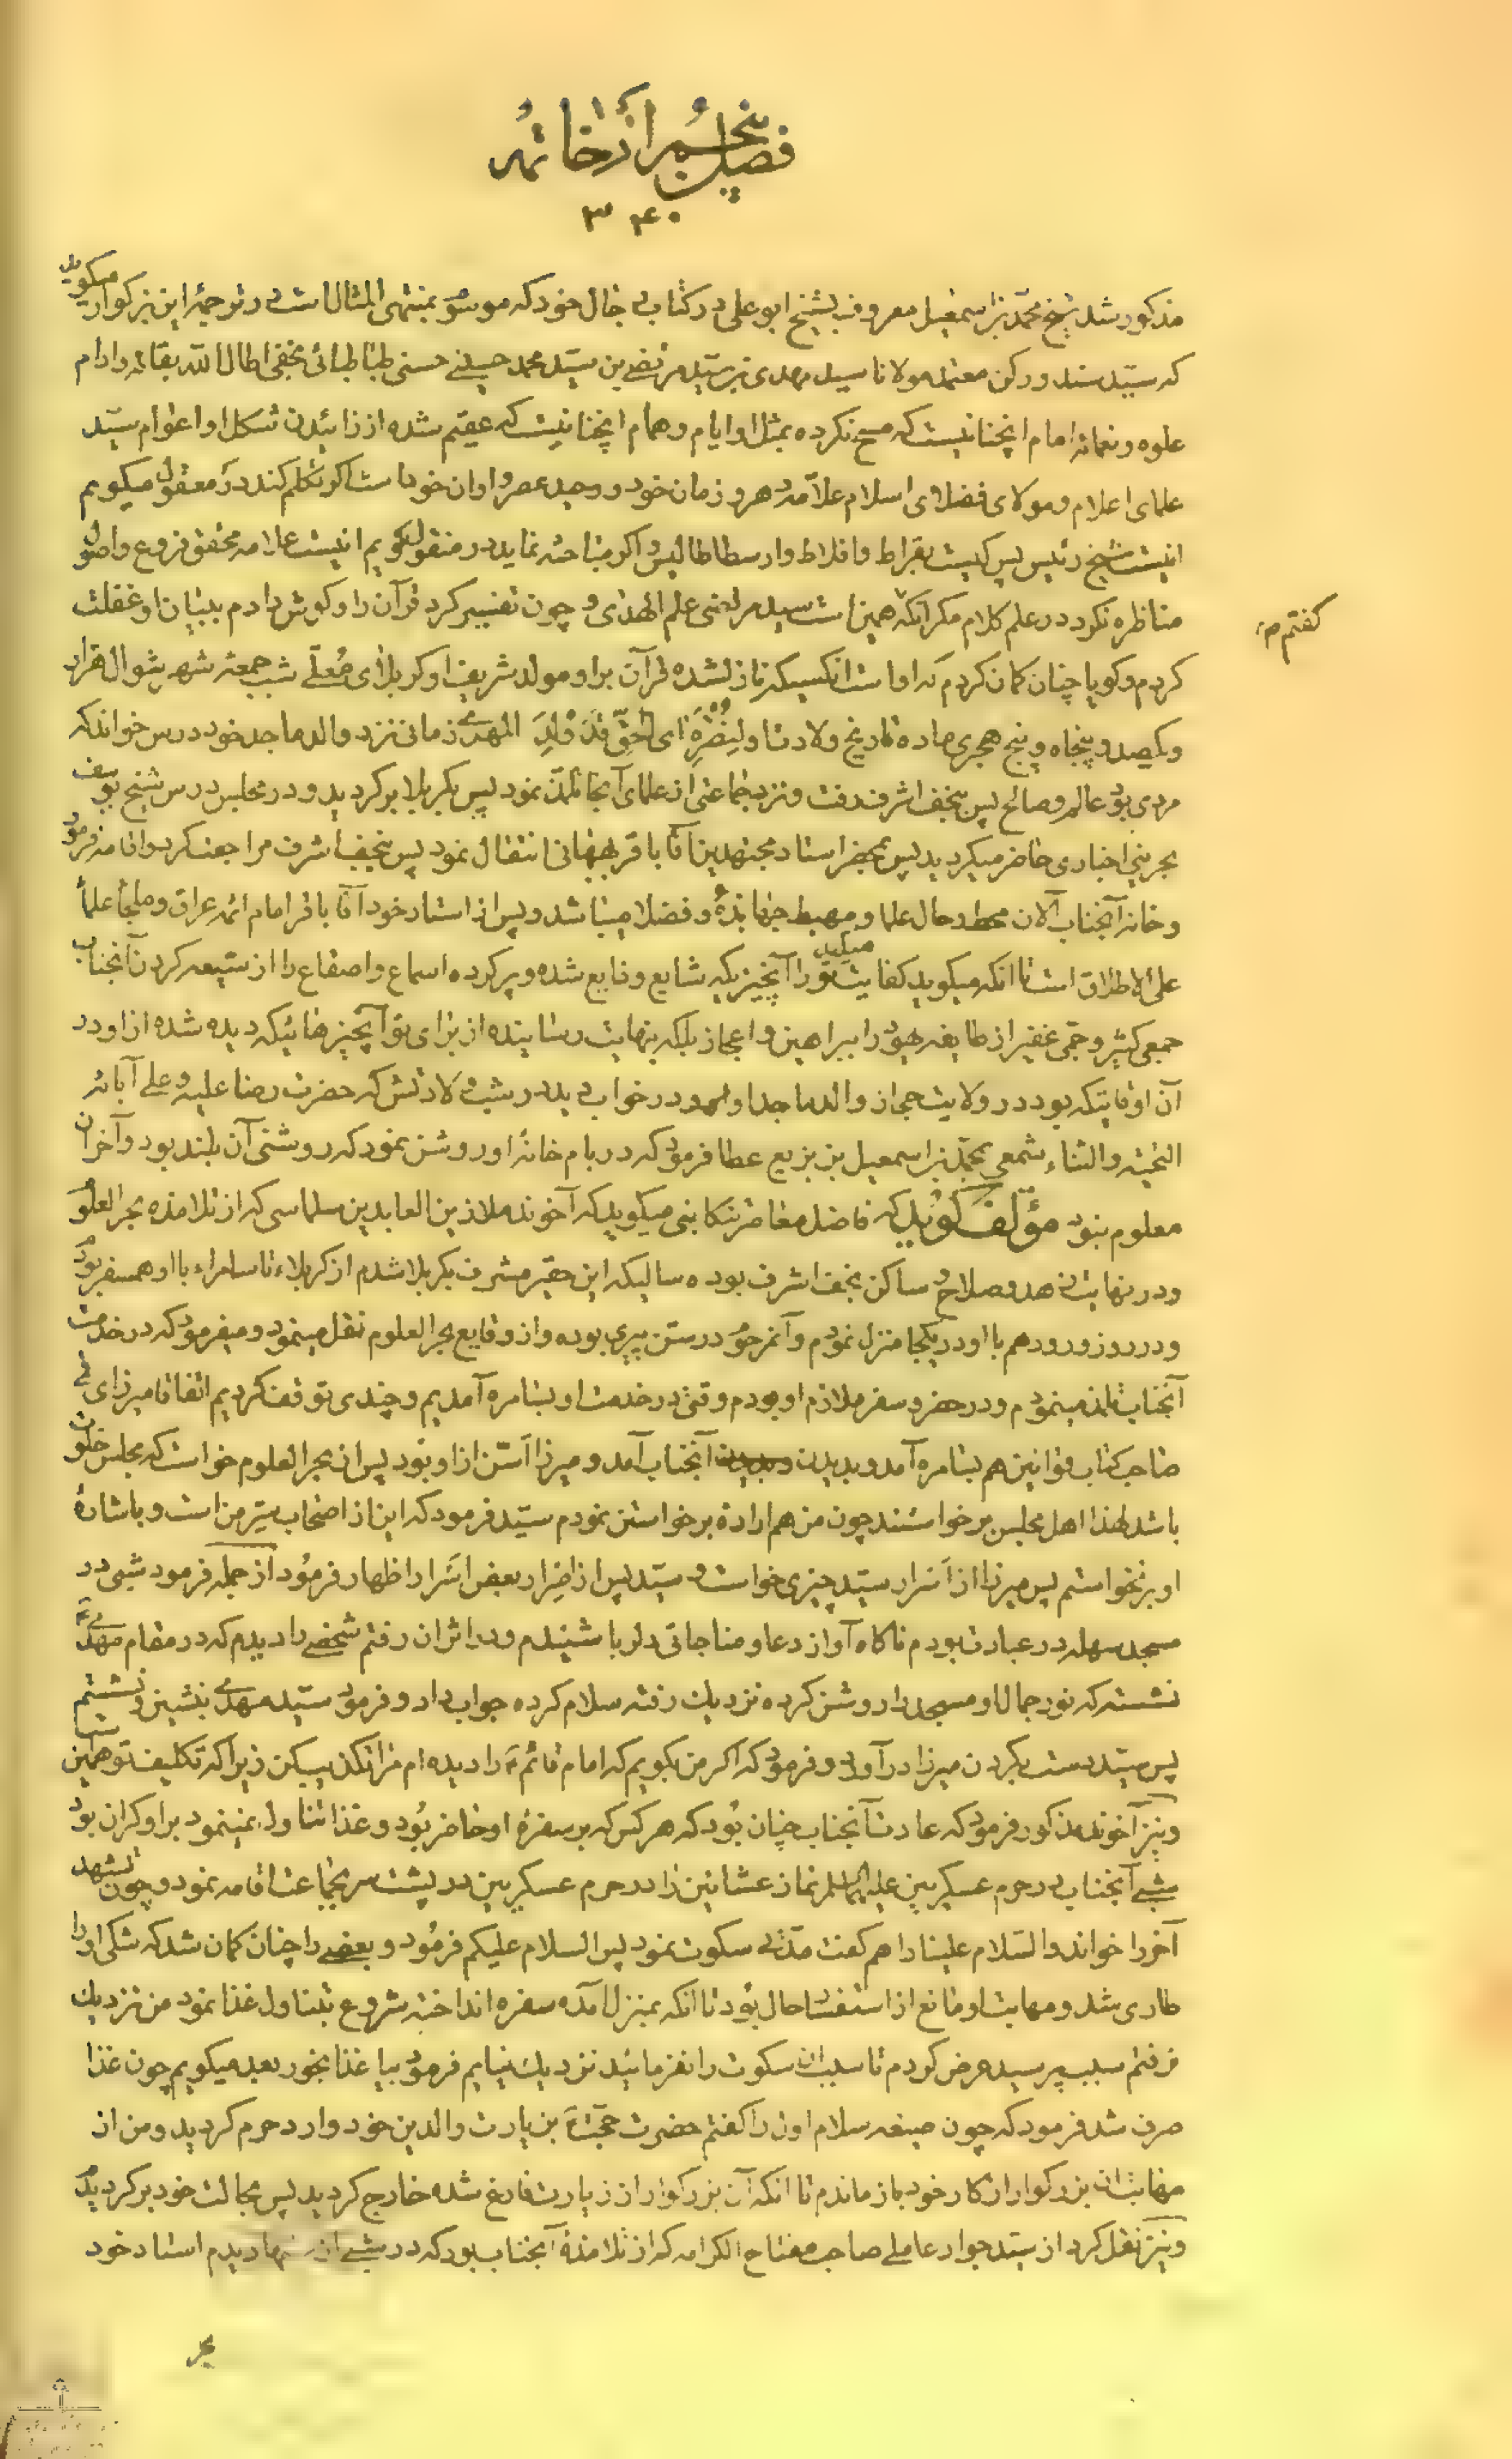 فصل پنجم از خاتمه
۳۴۰
مذکور شد شیخ محمد بن اسمعیل معروف بشیخ ابو علی در کتاب رجال خود که موسوم بمنتهی المقال است در ترجمهٔ این بزرکوار میکوید
که سیّد سند و رکن معتمد مولانا سید مهدی بن سیّد مرتضی بن سیّد محمد حسینی حسنی طباطبائی نجفی اطال الله بقائه و ادام
علوه و نعمائه امام آنچنانیست که مسح نکرده بمثل او ایام و همام آنچنانیست که عقیم شده از زائیدن شکل او اعوام سیّد
علمای اعلام و مولای فضلای اسلام علامه دهر و زمان خود و وحید عصر و اوان خود است اکر تکلم کند در معقول میکویم
اینست شیخ رئیس پس کیست بقراط و افلاط و ارسطاطالیس و اکر مباحثه نماید در منقول کویم اینست علامه محقق فروع و اصول
مناظره نکرد در علم کلام مکر آنکه گفتم همین است سید مرتضی علم الهدی و چون تفسیر کرد قرآن را و کوش دادم ببیان او غفلت
کردم و کویا چنان کمان کردم که او است آنکسیکه نازل شده قرآن بر او مولد شریف او کربلای مُعلّی شب جمعه شهر شوال هزار
و یکصد و پنجاه و پنج هجری ماده تاریخ ولادت او لِنُصْرَةِ ای الحَقِّ قَدْ وُلِدَ المهدی زمانی نزد والد ماجد خود درس خواند که
مردی بود عالم و صالح پس بنجف اشرف رفت و نزد جماعتی از علمای آنجا تلمّذ نمود پس بکربلا برکردید و در مجلس درس شیخ یوسف
بحرینی اخباری حاضر میکردید پس بمحضر استاد مجتهدین آقا باقر بهبهانی انتقال نمود پس بنجف اشرف مراجعت کرد و اقامه فرمود
و خانه آنجناب الآن محط رحال علما و مهبط جهابذهٔ و فضلا میباشد و پس از استاد خود آقا باقر امام ائمه عراق و ملجأ علما
علی الاطلاق است تا آنکه میکوید کفایت میکند تو را آنچیزیکه شایع و ذایع شده و پر کرده اسماع و اصقاع را از شیعه کردن آنجناب
جمعی کثیر و جمی غفیر از طایفه یهود را ببراهین و اعجاز بلکه بنهایت رساینده از برای تو آنچیزهائیکه دیده شده از او در
آن اوقاتیکه بود در ولایت حجاز والد ماجد او در خواب دید در شب ولادتش که حضرت رضا علیه و علی آبائه
التحیة والثناء شمعی بمحمد بن اسمعیل بن بزیع عطا فرمود که در بام خانهٔ او روشن نمود که روشنی آن بلند بود و آخر آن
معلوم نبود مؤلف کوید که فاضل معاصر تنکابنی میکوید که آخوند ملا زین العابدین سلماسی که از تلامذه بحر العلوم
و در نهایت زهد و صلاح و ساکن نجف اشرف بوده سالیکه این حقیر مشرف بکربلا شدم از کربلاء تا سامراء با او همسفر بودم
و در روز ورود هم با او در یکجا منزل نمودم و آنمرحوم در سن پیری بوده و از وقایع بحر العلوم نقل مینمود و میفرمود که در خدمت
آنجناب تلمذ مینمودم و در حضر و سفر ملازم او بودم وقتی در خدمت او بسامره آمدیم و چندی توقف کردیم اتفاقا میرزای قمی
صاحب کتاب قوانین هم بسامره آمد و بدیدن آنجناب آمد و میرزا اسنّ از او بود پس از بحر العلوم خواست که مجلس خلوت
باشد لهذا اهل مجلس برخواستند چون من هم ارادهٔ برخواستن نمودم سیّد فرمود که این از اصحاب سِرّ من است و باشارهٔ
او برنخواستم پس میرزا از اسرار سیّد چیزی خواست و سیّد پس از اصرار بعض اسرار اظهار فرمود از جمله فرمود شبی در
مسجد سهله در عبادت بودم ناکاه آواز دعا و مناجاتی دلربا شنیدم و در اثر آن رفتم شخصی را دیدم که در مقام مهدی ع
نشسته که نور جمال او مسجد را روشن کرده نزدیک رفته سلام کرده جواب داد و فرمود سیّد مهدی بنشین و نشستم
پس سیّد دست بکردن میرزا درآورد و فرمود که اکر من بکویم که امام قائم ع را دیده ام مرا تکذیب کن زیرا که تکلیف تو همین است
و نیز آخوند مذکور فرمود که عادت آنجناب چنان بود که هر کس که بر سفرهٔ او حاضر بود و غذا تناول نمینمود بر او کران بود
شبی آنجناب در حرم عسکریین علیهما السلام نماز عشائین را در حرم عسکریین در پشت سر بجماعت اقامه نمود و چون تشهد
آخر را خواند و السّلام علینا را هم کفت مدّتی سکوت نمود پس السلام علیکم فرمود و بعضی را چنان کمان شد که شکی او را
طاری شد و مهابت او مانع از استفسار حال بود تا آنکه بمنزل آمده سفره انداخته شروع بتناول غذا نمود من نزدیک
نرفتم سبب پرسید عرض کردم تا سبب آن سکوت را نفرمائید نزدیک نیایم فرمود بیا غذا بخور بعد میکویم چون غذا
صرف شد فرمود که چون صیغه سلام اول را کفتم حضرت حجّت ع بزیارت والدین خود وارد حرم کردید و من از
مهابت آن بزرکوار از کار خود باز ماندم تا آنکه آن بزرکوار از زیارت فارغ شده خارج کردید پس بحالت خود برکردیدم
و نیز نقل کرد از سیّد جواد عاملی صاحب مفتاح الکرامه که از تلامذهٔ آنجناب بود که در شبی از شبها دیدم استاد خود
بحر